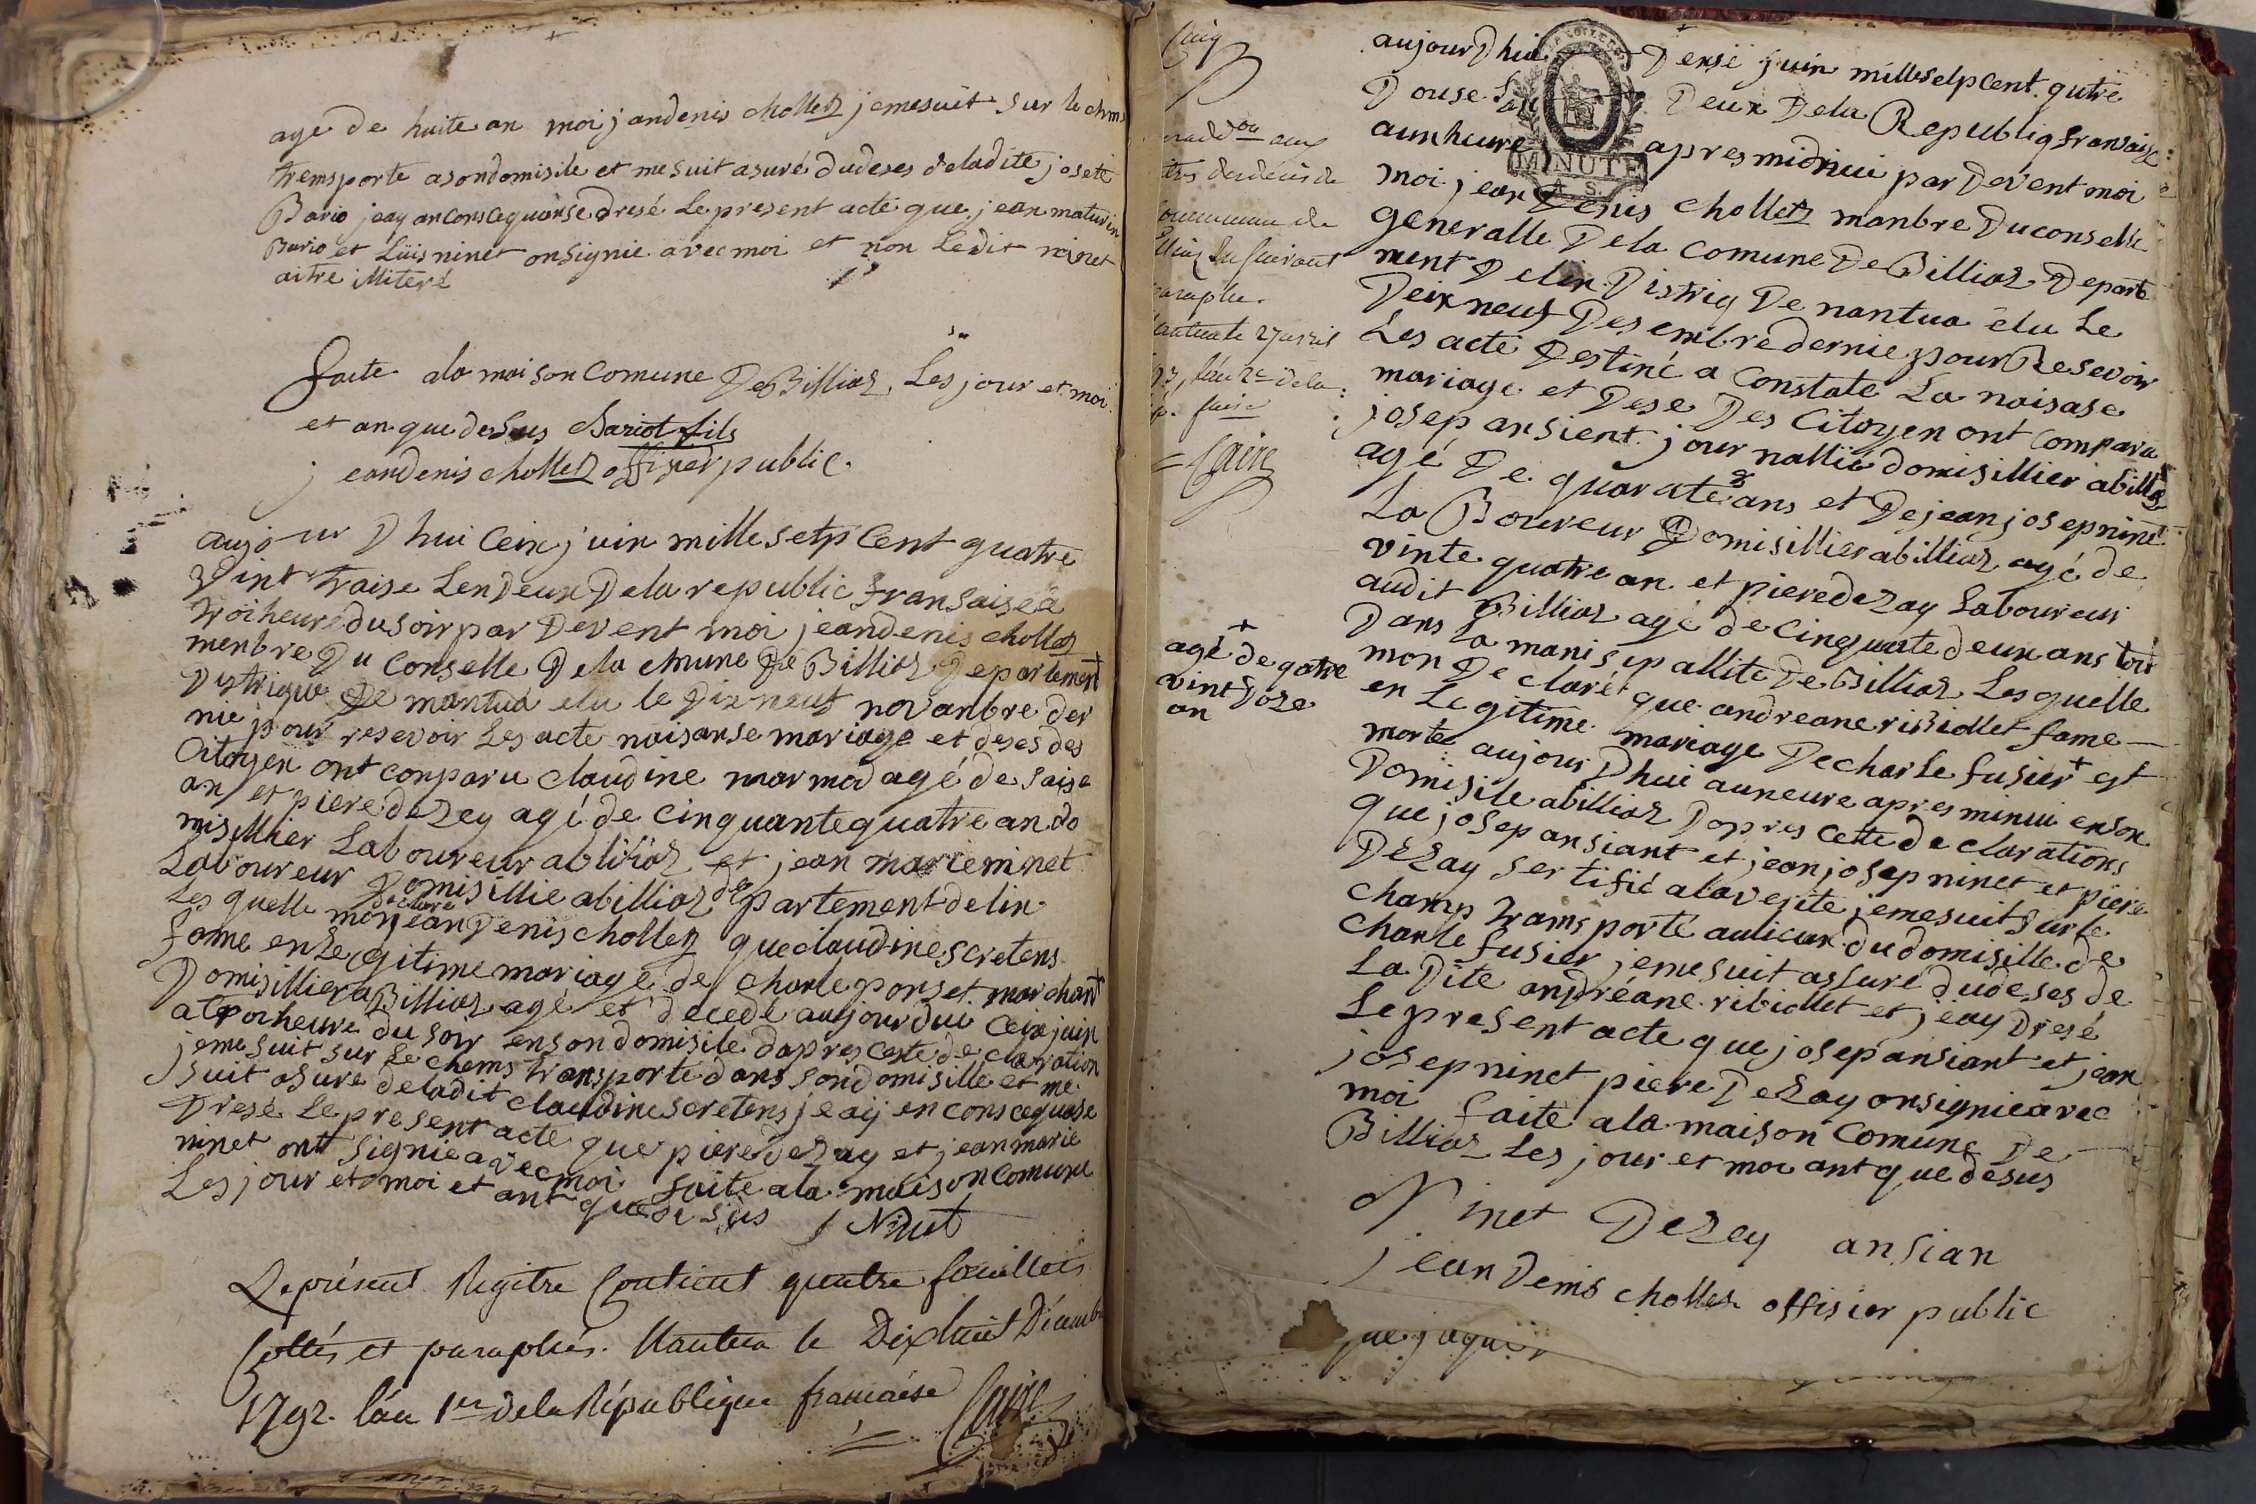 age de huite an moi jandenis chollet jemesuit sur le chm
tremsporte asondomisile et mesuit asuré dudeses deladite josete
Bario jeay anconscequanse dresé Lepresent acte que jean maturin
Bario et Luis ninet onsignie avec moi et non Ledit ninet
aitre illiteré
faite ala maison comune DeBillias Les jour et moi
et an que desus Bariot fils
jeandenis chollet offisier public
aujour D hui Ceix juin mille setp Cent quatre
vint traise Lendeux Dela republic fransaise a
troiheure dusoir par Devent moi jeandenis chollet
menbre Du Conselle Dela cmune De Billias Departement
Distrique De nantua elu le Dix neuf novanbre der
nie pour resevoir Les acte naisanse mariage et deses des
Citoyen ont conparu claudine marmod agé de saise
an et piere dezey agé de cinquantequatre an do
misillier Laboureur abillias et jean marieninet
Laboureur Domisillie abillias departement delin
Les quelle mon declaré jeanDenis chollet queclaudine scretens
fame enLegitime mariage de charle ponset marchant
Domisillier aBillias agé et decedé aujourdui ceix juin
atroiheure du soir ensondomisile dapres ceste declaration
jeme suit sur Le chems transporte dans sondomisille et me
suit asure deladit claudine scretens jeaij en conscequase
Dresé Lepresent acte que piere dezay et jean marie
ninet ont signie avec moi faite ala maison comune
Les jour et moi et ant que desus
J Ninet
Le présent Regitre Contient quatre feuillets
Cottés et paraphés. Nantua le Dixhuit Décemb
1792. l'an 1er de la République francaise
Claire
Cinq
aux
des decès de
commune de
Billias
paraphé.
Nantua le 27 avril
l'an 2e de la
Claire
agé de qatre
vint doze
an
aujour D hui Dense juin millesetpcent qutre
Douse Lan Deux Dela Republiq fransaise
aunheure apresmidniui par Devent moi
MINUTE
A S.
moi jean Denis chollet manbre Duconselle
generalle Dela comune DeBillias Departe
ment Delin Distriq De nantua élu Le
Deixneuf Desembre dernie pour Resevoir
Les acte Destiné a constate La naisase
mariage et Dese Des Citoyen ont comparu
josep ansient journallié domisillier abillias
agé De quarate ans et Dejeanjosepninet
La Boureur Domisillier abillias agé de
vinte quatre an et piere dezay Laboureur
audit Billias agé de cinquate deux ans tout
Dans La manisipallite DeBillias Lesquelle
mon De claré que andreane ribiollet fame
en Legitime mariage Decharle fusier + est
morte aujour Dhui auneure apres minui enson
Domisile abillias Dapres cette declarations
que josep ansiant et jeanjosep ninet et piere
Dezay sertifié alaverite jemesuit Surle
champ transporté aulieux dudomisille de
charle fusier jemesuit assuré dudeses de
La Dite andréane ribiollet et jeay Dresé
Lepresent acte que josep ansiant et jean
josepninet piere Dezay onsignieavec
moi faite ala maison comune De
Billias Les jour et moi ant que desus
Ninet Dezey ansian
jean Denis chollet offisier public